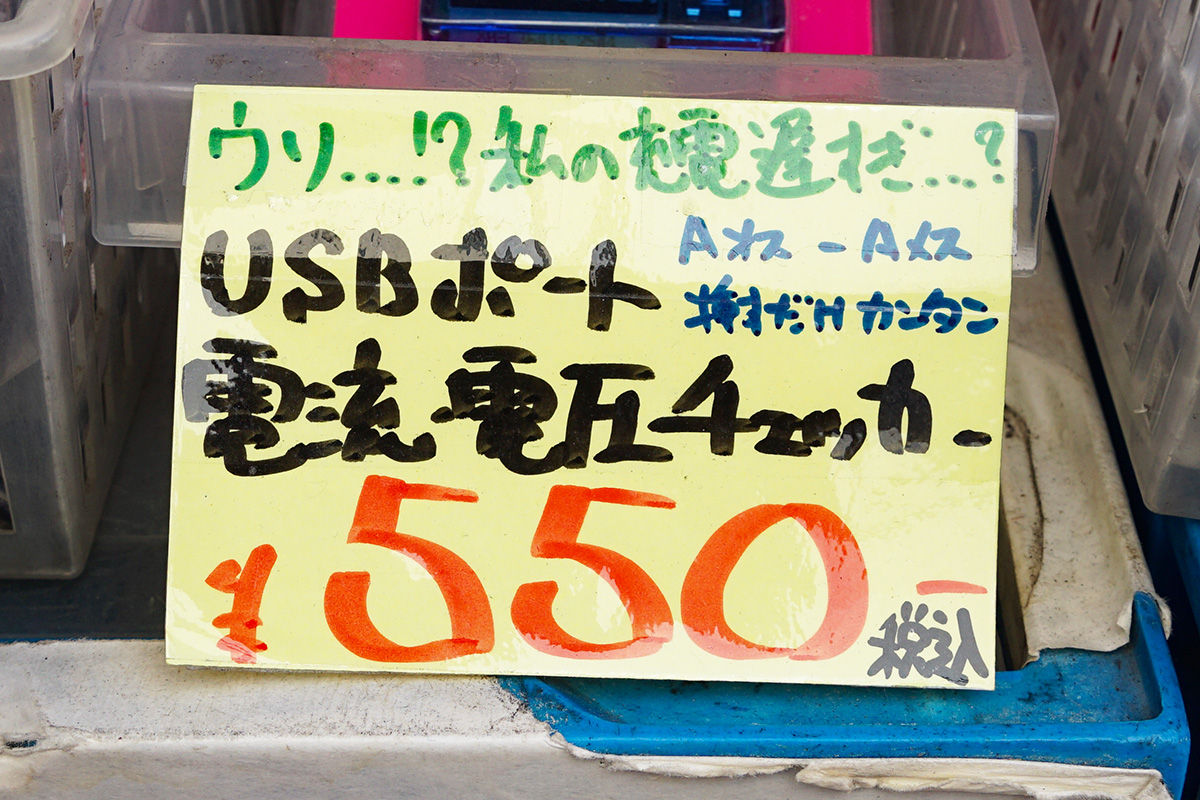 ウソ...!?私の充電遅すぎ...?
USBポート
Aメス-Aメス
挿すだけカンタン
電流電圧チェッカー
¥550-
税込